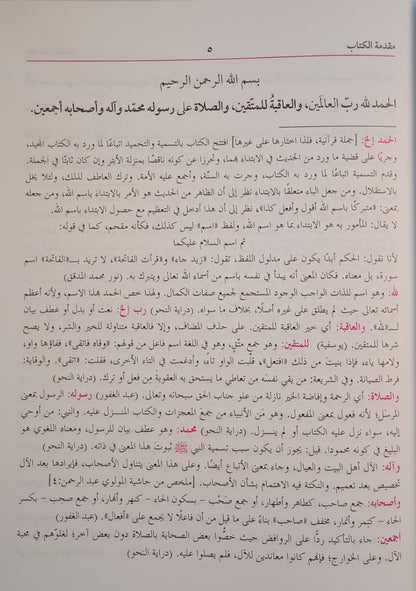 مقدمة الكتاب ٥
بسم الله الرحمن الرحيم
الحمد لله ربّ العالمَين، والعاقبةُ للمتّقين، والصلاة على رسوله محمّد وآله وأصحابه أجمعين.
الحمد إلخ: [جملة قرآنية، فلذا اختارها على غيرها] افتتح الكتاب بالتسمية والتحميد اتباعًا لما ورد به الكتاب المجيد،
وجريًا على قضية ما ورد من الحديث في الابتداء بهما، وتحرزا عن كونه ناقصًا بمنزلة الأبتر وإن كان ثابتًا في الجملة.
وقدم التسمية اتباعًا لما ورد به الكتاب، وجرت به السنّة، وأجمع عليه الأمة. وترك العاطف لذلك، ولئلا يخل
بالاستقلال. ومن جعل الباء متعلقًا بالابتداء نظر إلى أن الظاهر من الحديث هو الأمر بالابتداء باسم الله، ومن جعله
بمعنى: «متبركًا باسم الله أقول وأفعل كذا»، نظر إلى أن هذا أدخل في التعظيم مع حصول الابتداء باسم الله.
لا يقال: المأمور به هو الابتداء بما هو اسم الله، ولفظ «اسم» ليس كذلك، فكأنه مقحم، كما في قوله:
ثم اسم السلام عليكما
لأنا نقول: الحكم أبدًا يكون على مدلول اللفظ، تقول: «زيد جاء» و«قرأت الفاتحة»، لا تريد بـ«الفاتحة» اسم
سورة، بل معناه. فكان المعنى أنه يبدأ في نفسه باسم من أسماء الله تعالى ويتبرك به. (نور محمد المدقق)
لله: وهو اسم للذات الواجب الوجود المستجمع لجميع صفات الكمال. ولهذا خص الحمد بهذا الاسم، ولأنه أعظم
أسمائه تعالى حيث لم يطلق على غيره أصلًا، بخلاف ما سواه. (دراية النحو) رب إلخ: نعت أو بدل أو عطف بيان
لـ«الله». والعاقبة: أي خير العاقبة للمتقين. على حذف المضاف، وإلا فالعاقبة متناولة للخير والشر، ولا يصح
شرها للمتقين. (يوسفية) للمتقين: وهو جمع متّقٍ، وهو في اللغة اسم فاعل من قولهم: «وقاه فاتقى»، ففاؤها واو،
ولامها ياء، فإذا بنيت من ذلك «افتعل»، قلبت الواو تاءً، وأدغمت في التاء الأخرى، فقلت: «اتقى». والوقاية:
فرط الصيانة. وفي الشريعة: من يقي نفسَه من تعاطي ما يستحق به العقوبة من فعل أو ترك. (دراية النحو)
والصلاة: أي الرحمة وإفاضة الخير نازلة من علو جناب الحق سبحانه وتعالى. (عبد الغفور) رسوله: الرسول بمعنى
المرسل؛ لأنه فعول بمعنى المفعول. وهو مَن الأنبياء من جمع المعجزات والكتاب المنـزل عليه. والنبي: من أوحي
إليه، سواء نزل عليه الكتاب أو لم ينـزل. (دراية النحو) محمد: وهو عطف بيان للرسول، ومعناه اللغوي هو
البليغ في كونه محمودا. قيل: يجوز أن يكون سبب تسمية النبي ﷺ ثبوتَ هذا المعنى في ذاته. (دراية النحو)
وآله: الآل أهل البيت والعيال، وجاء بمعنى الأتباع أيضًا. وعلى هذا المعنى يتناول الأصحاب، فإيرادها بعد الآل
تخصيص بعد تعميم، والنكتة فيه الاهتمام بشأن الأصحاب. (ملخص من حاشية المولوي عبد الرحمن:٤)
وأصحابه: جمع صاحب، كطاهر وأطهار، أو جمع صَحْب - بسكون الحاء - كنهر وأنهار، أو جمع صَحِب - بكسر
الحاء - كنَمِر وأنمار، مخفف «صاحب» بناءً على ما قيل من أن فاعلًا لا يجمع على «أفعال». (عبد الغفور)
أجمعين: جاء بالتأكيد ردًّا على الروافض حيث خصُّوا بعض الصحابة بالصلاة دون بعض آخر؛ لغلوّهم في محبة
الآل. وعلى الخوارج؛ فإنهم كانوا معاندين للآل، فلم يصلوا عليه. (دراية النحو)